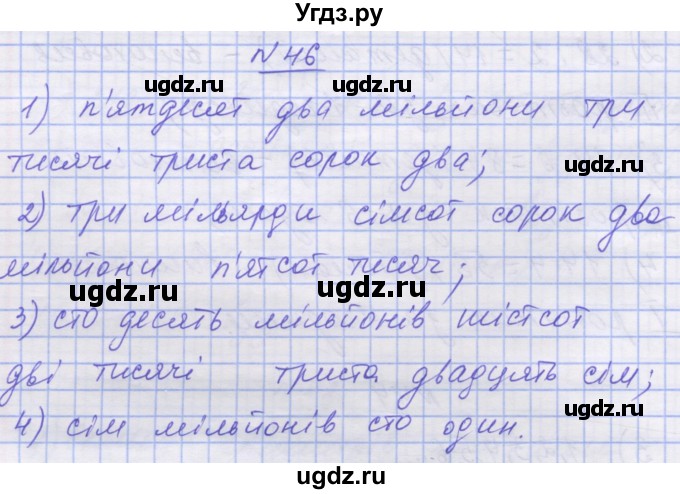 Угдз.ру
N 46
ugdz.ru ugdz.ru
1) п'ятдесят два мільйони три
тисячі триста сорок два;
ugdz.ru ugdz.ru
2) три мільярди сімсот сорок два
мільйони п'ятсот тисяч;
ugdz.ru ugdz.ru
3) сто десять мільйонів шістсот
дві тисячі триста двадцять сім;
ugdz.ru ugdz.ru
4) сім мільйонів сто один.
ugdz.ru